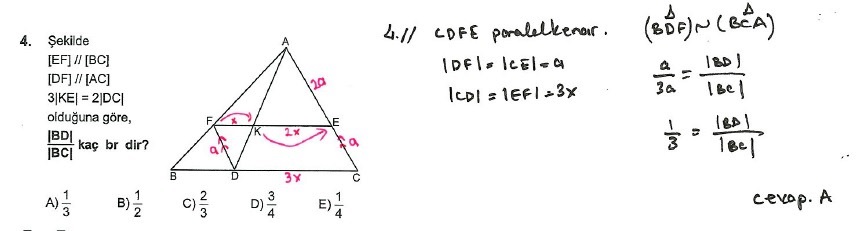 4. Şekilde
[EF] // [BC]
[DF] // [AC]
3|KE| = 2|DC|
olduğuna göre,
|BD|/|BC| kaç br dir?
A
2a
F
x
K
2x
E
a
a
B
D
3x
C
A) 1/3 B) 1/2 C) 2/3 D) 3/4 E) 1/4
4.// CDFE paralelkenar.
|DF| = |CE| = a
|CD| = |EF| = 3x
(BDF) ~ (BCA)
a/3a = |BD|/|BC|
1/3 = |BD|/|BC|
cevap. A